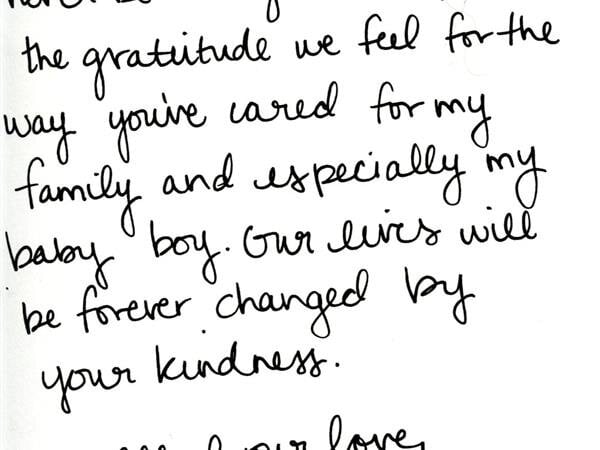 the gratitude we feel for the
way you've cared for my
family and especially my
baby boy. Our lives will
be forever changed by
your kindness.
our love,